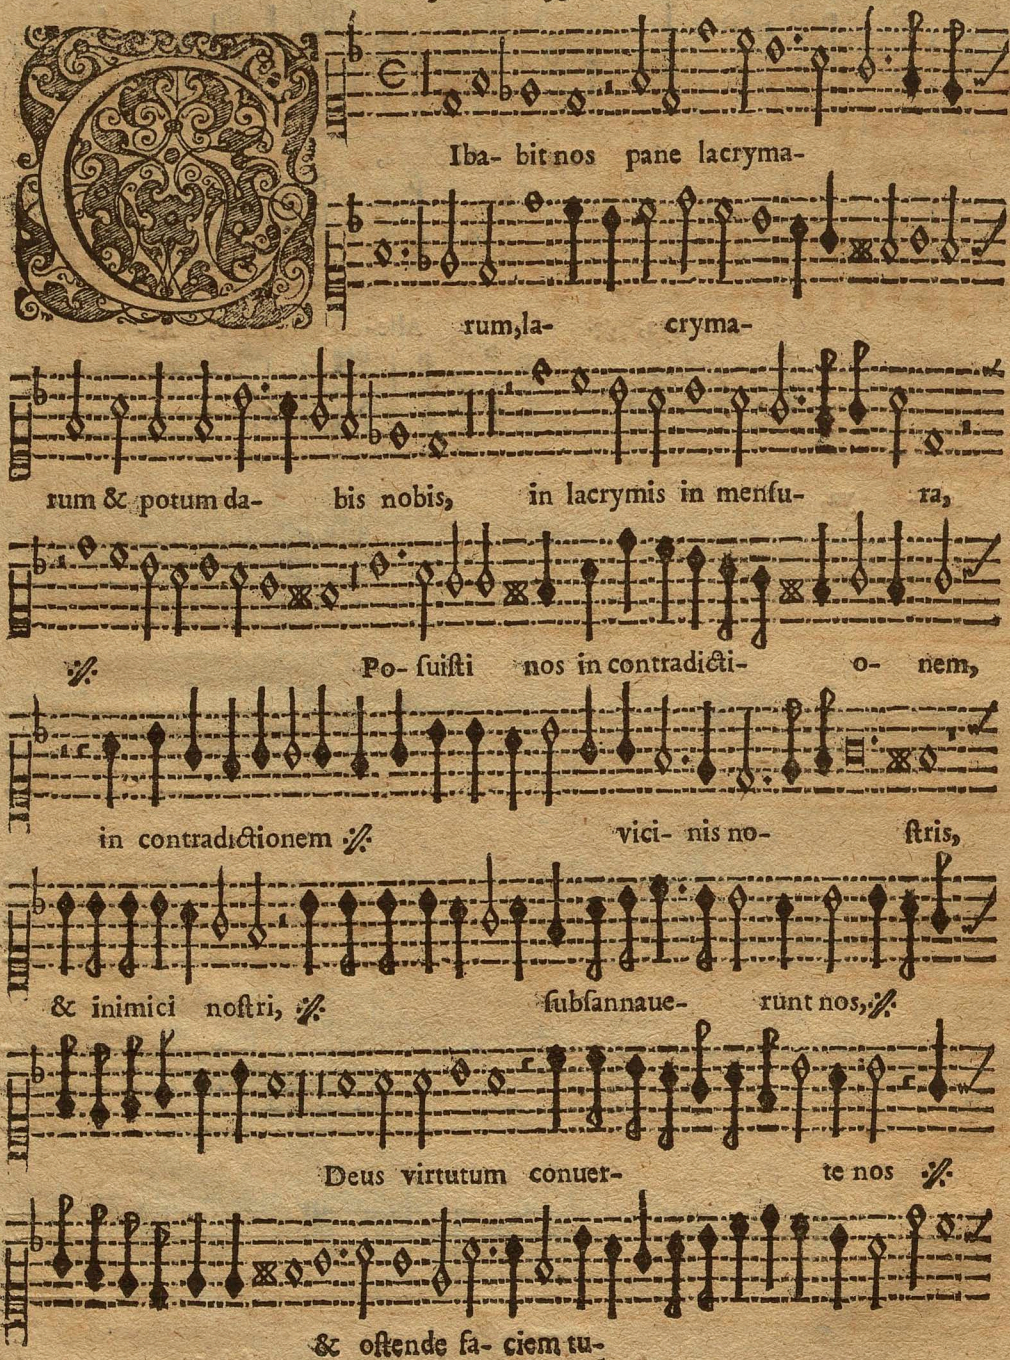 CIba- bit nos pane lacryma-
rum,la- cryma-
rum & potum da- bis nobis, in lacrymis in menſu- ra,
·//. Po- ſuiſti nos in contradicti- o- nem,
in contradictionem ·//. vici- nis no- ſtris,
& inimici noſtri, ·//. ſubſannaue- runt nos,·//.
Deus virtutum conuer- te nos ·//.
& oſtende fa- ciem tu-